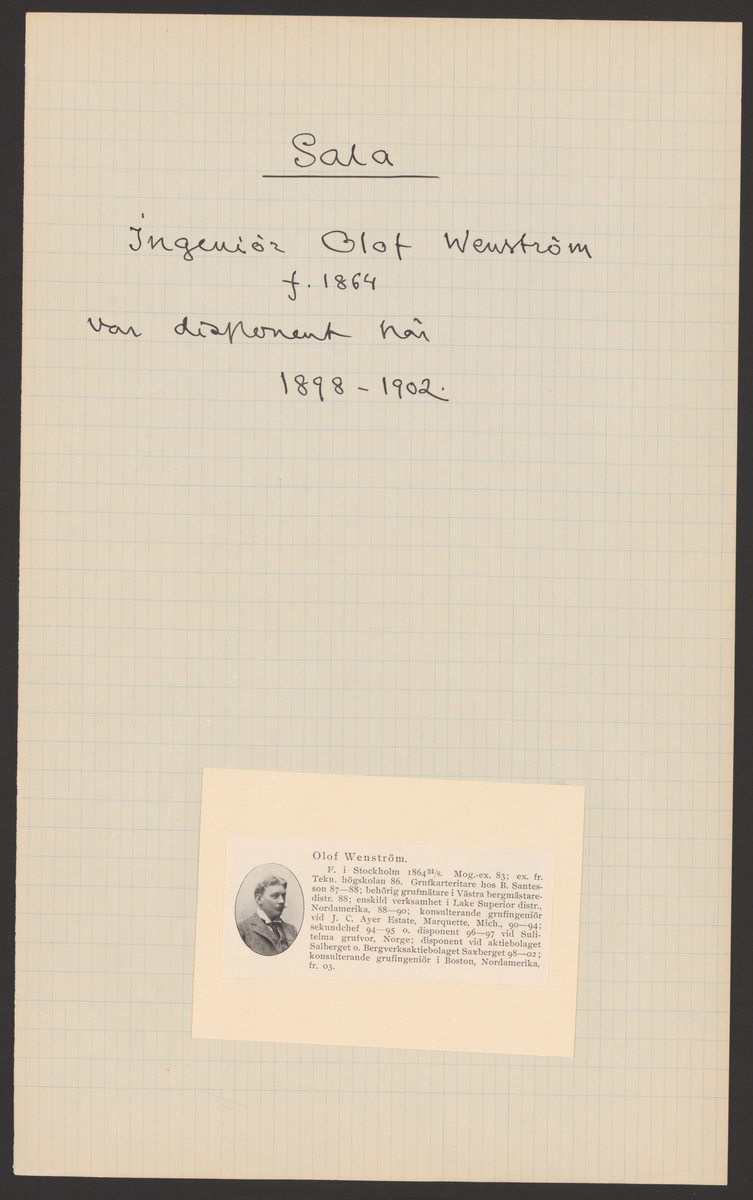 Sala
Ingeniör Olof Wenström
f. 1864
var disponent här
1898 - 1902.
Olof Wenström.
F. i Stockholm 1864 24/8. Mog.-ex. 83; ex. fr.
Tekn. högskolan 86. Grufkarteritare hos B. Santes-
son 87—88; behörig grufmätare i Västra bergmästare-
distr. 88; enskild verksamhet i Lake Superior distr.,
Nordamerika, 88—90; konsulterande grufingeniör
vid J. C. Ayer Estate, Marquette, Mich., 90—94;
sekundchef 94—95 o. disponent 96—97 vid Suli-
telma grufvor, Norge; disponent vid aktiebolaget
Salberget o. Bergverksaktiebolaget Saxberget 98—02;
konsulterande grufingeniör i Boston, Nordamerika,
fr. 03.